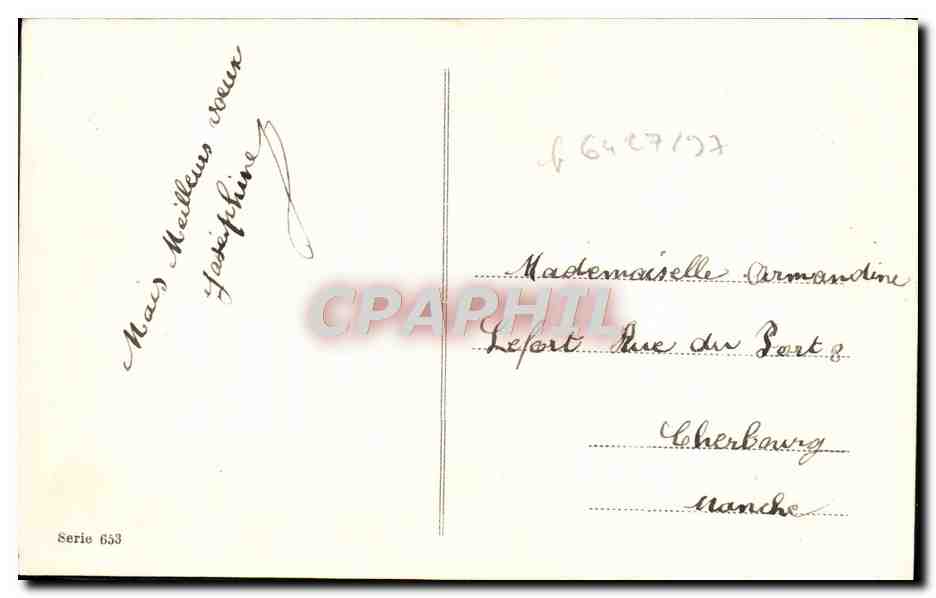 Maies Meilleurs voeux
Joséphine
6427/97
Mademoiselle Armandine
Lefort Rue du Port 8
Cherbourg
Manche
CPAPHIL
Serie 653